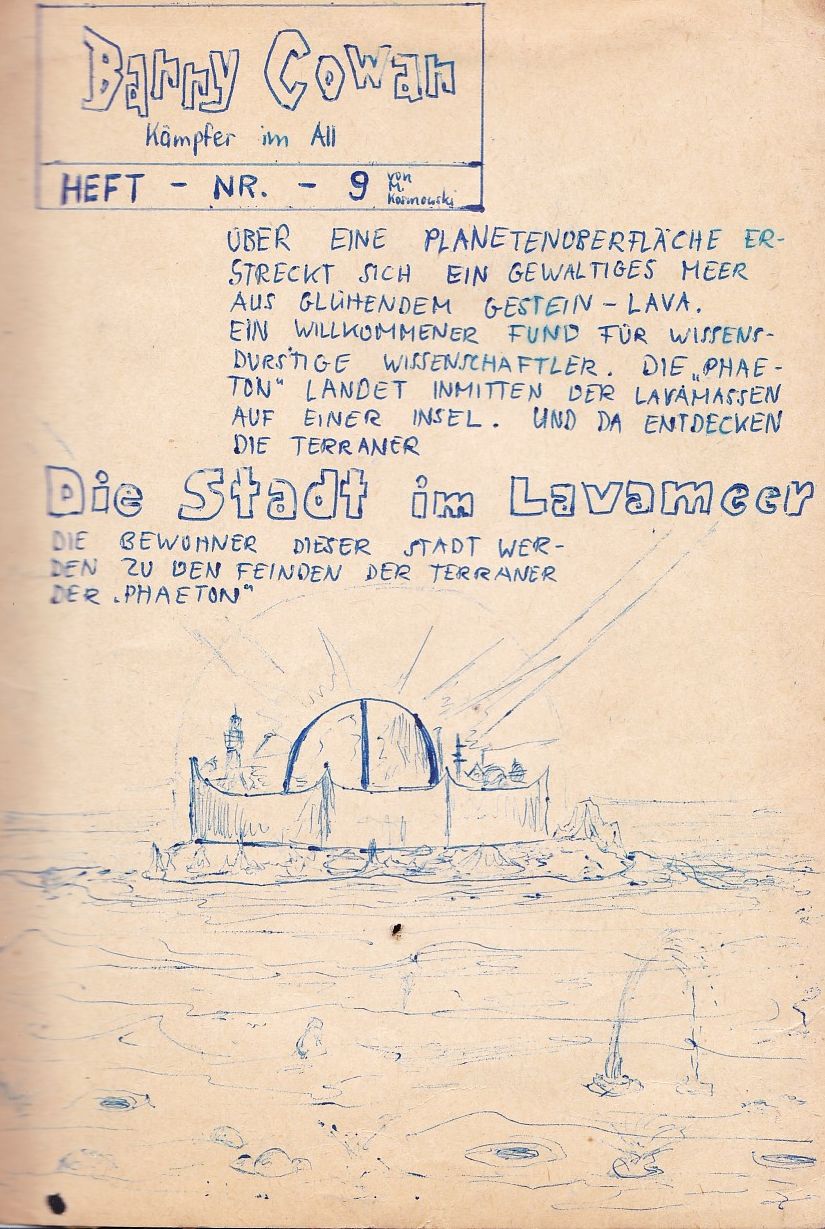 Barry Cowan
Kämpfer im All
HEFT - NR. - 9
von
M.
Kosmowski
ÜBER EINE PLANETENOBERFLÄCHE ER-
STRECKT SICH EIN GEWALTIGES MEER
AUS GLÜHENDEM GESTEIN - LAVA.
EIN WILLKOMMENER FUND FÜR WISSENS-
DURSTIGE WISSENSCHAFTLER. DIE „PHAE-
TON" LANDET INMITTEN DER LAVAMASSEN
AUF EINER INSEL. UND DA ENTDECKEN
DIE TERRANER
Die Stadt im Lavameer
DIE BEWOHNER DIESER STADT WER-
DEN ZU DEN FEINDEN DER TERRANER
DER „PHAETON"